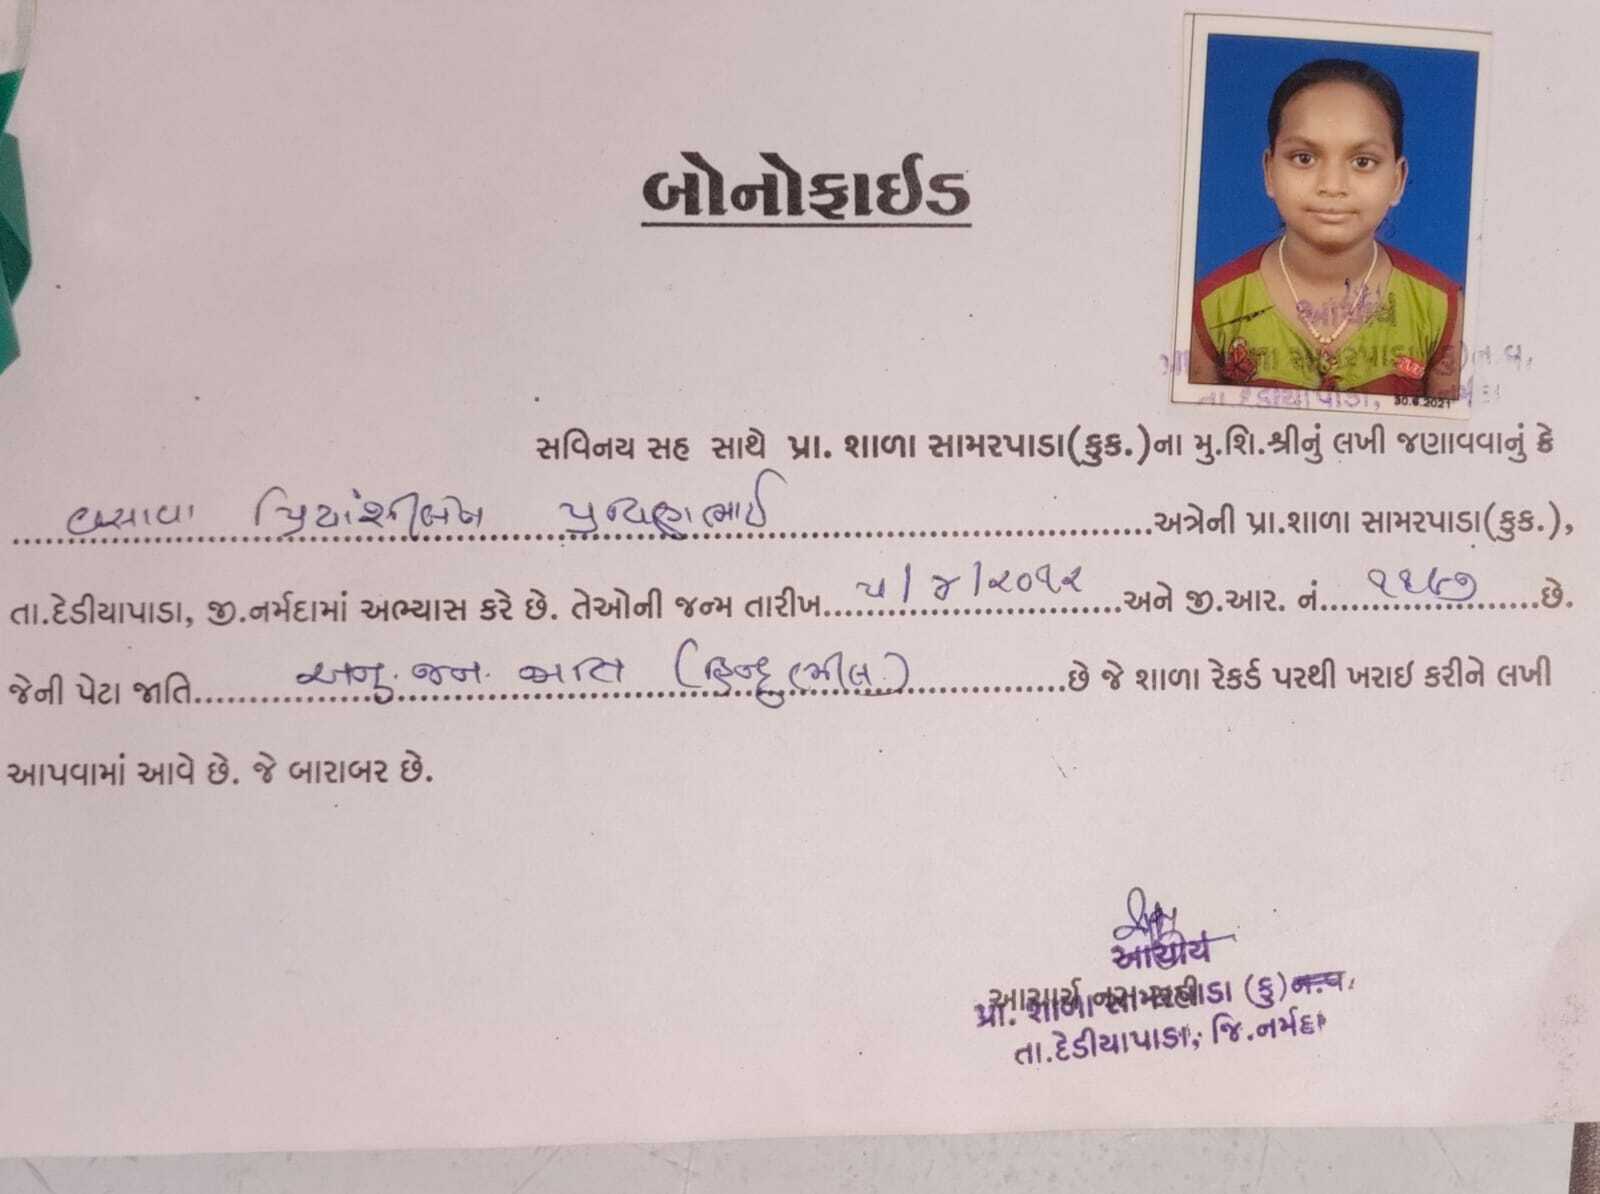 બોનોફાઈડ
આચાર્ય
પ્રા. શાળા સામરપાડા (કુ) ન.વ.
તા.દેડીયાપાડા, નર્મદા
30.6.2021
સવિનય સહ સાથે પ્રા. શાળા સામરપાડા(કુક.)ના મુ.શિ.શ્રીનું લખી જણાવવાનું કે
વસાવા પ્રિયાંશીબેન .....અત્રેની પ્રા.શાળા સામરપાડા(કુક.),
તા.દેડીયાપાડા, જી.નર્મદામાં અભ્યાસ કરે છે. તેઓની જન્મ તારીખ...૫/૪/૨૦૧૨...અને જી.આર. નં.....છે.
જેની પેટા જાતિ.....અનુ. જન. જાતિ (હિન્દુ ભીલ.).....છે જે શાળા રેકર્ડ પરથી ખરાઇ કરીને લખી
આપવામાં આવે છે. જે બારાબર છે.
આચાર્ય
પ્રા. શાળા સામરપાડા (કુ) ન.વ.
તા.દેડીયાપાડા, જિ.નર્મદા